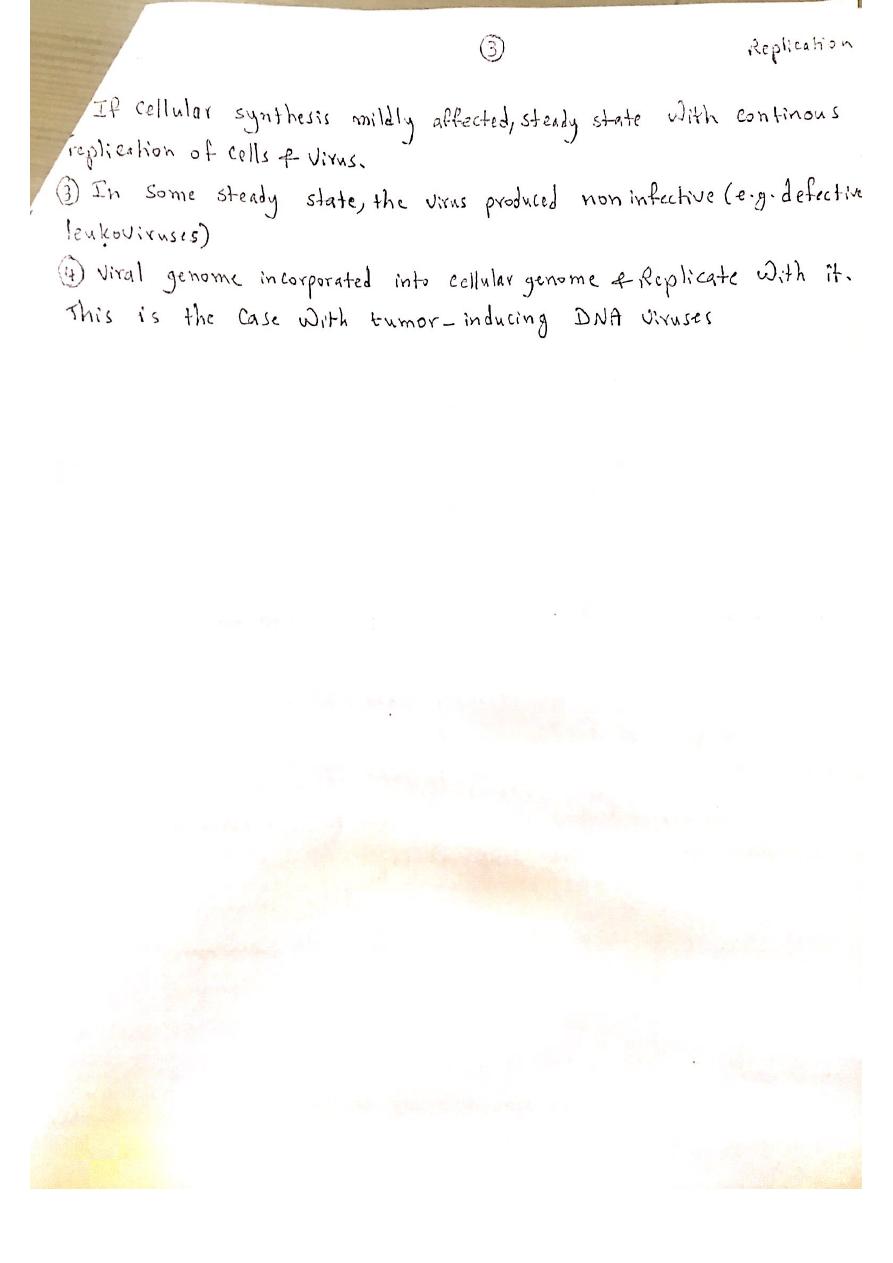 ③ Replication
If cellular synthesis mildly affected, steady state with continous
replication of cells & virus.
③ In some steady state, the virus produced non infective (e.g. defective
leukoviruses)
④ Viral genome incorporated into cellular genome & Replicate with it.
This is the case with tumor-inducing DNA viruses